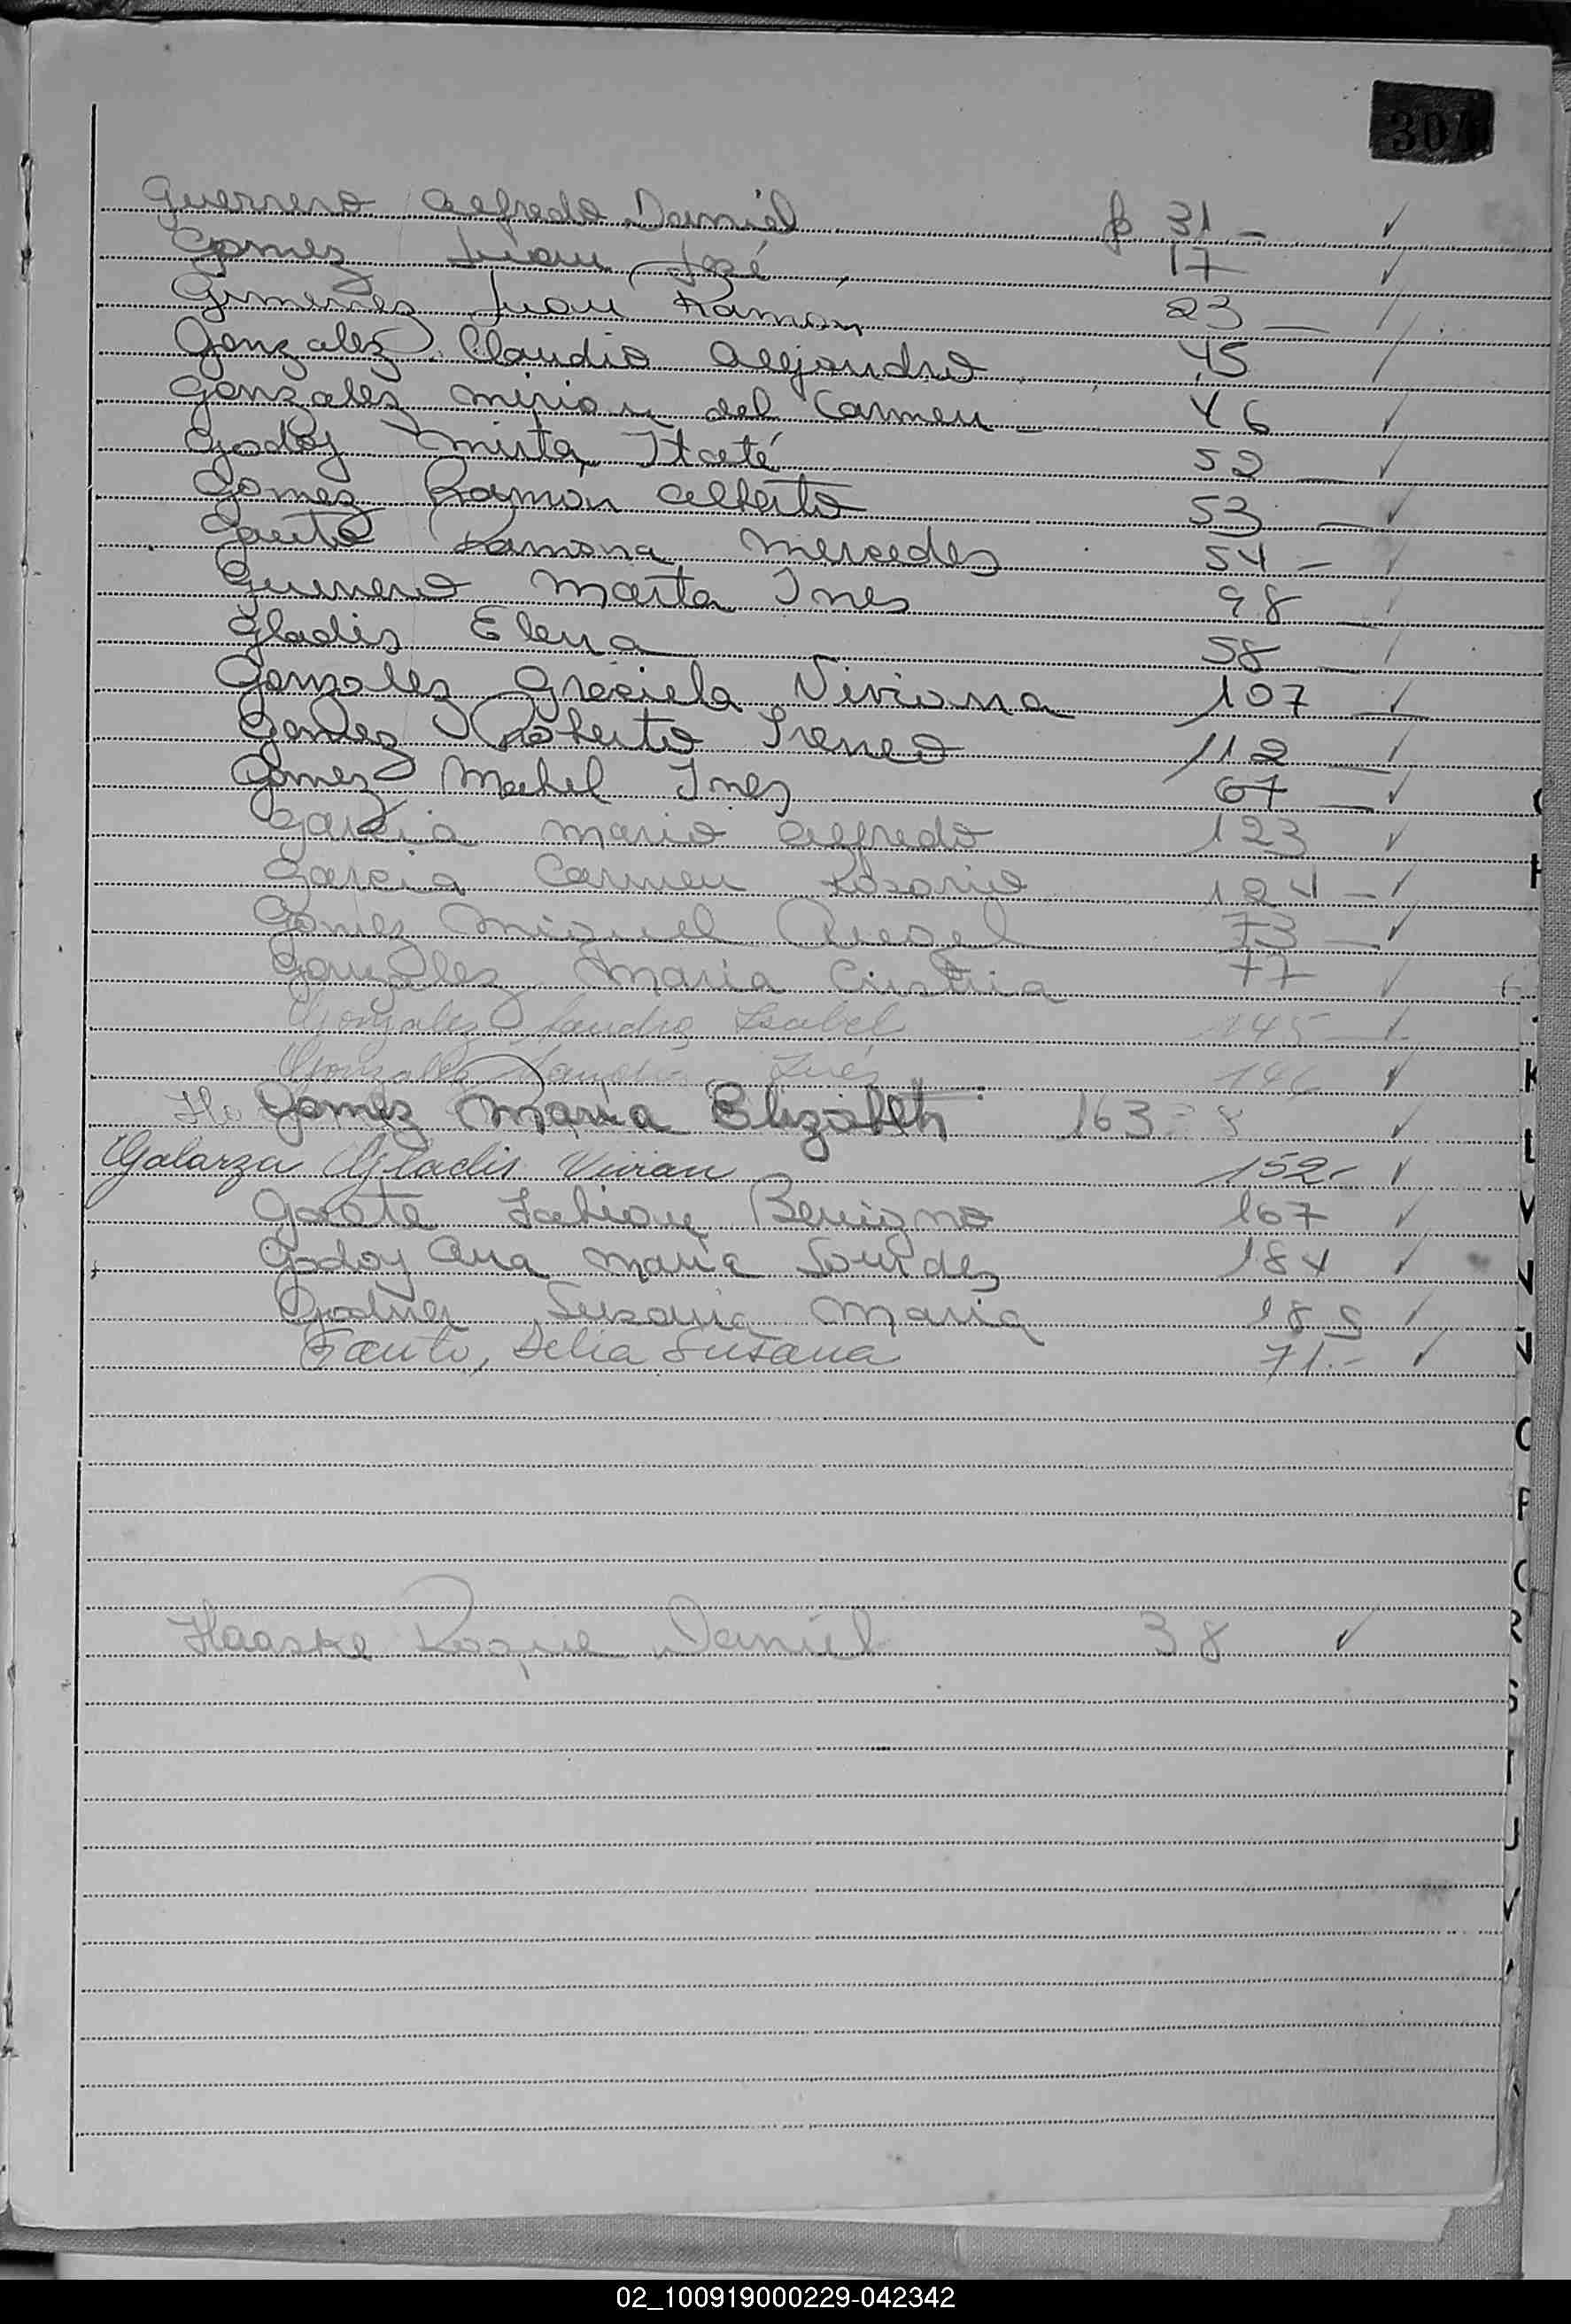 304
Guerrero Alfredo Daniel fo 31 - ✓
Gomez Juan José 17 ✓
Gimenez Juan Ramón 23 - ✓
Gonzalez Claudio Alejandro 45 ✓
Gonzalez Mirian del Carmen - 46 ✓
Godoy Mirta Itatí 52 - ✓
Gomez Ramón Alberto 53 - ✓
Gauto Ramona Mercedes 54 - ✓
Guerrero Marta Ines 98 - ✓
Gladis Elena 58 - ✓
Gonzalez Graciela Viviana 107 - ✓
Gomez Roberto Ireneo 112 - ✓
Gomez Mabel Ines 67 - ✓
Garcia Mario Alfredo 123 ✓
Garcia Carmen Rosario 124 - ✓
Gomez Miguel Angel 73 - ✓
Gonzalez Maria Cristina 77 ✓
Gonzalez Sandra Isabel 145 - ✓
Gonzalez Sandra Inés 146 ✓
Gomez Maria Elizabeth 163 ✓
Galarza Gladis Vivian 152 - ✓
Fabian Benigno 167 ✓
Godoy Ana Maria Lourdes 184 ✓
Susana Maria 185 ✓
Gauto, Delia Susana 71.- ✓
Haaske Roque Daniel 38 ✓
K
L
O
P
R
S
T
U
V
02_100919000229-042342